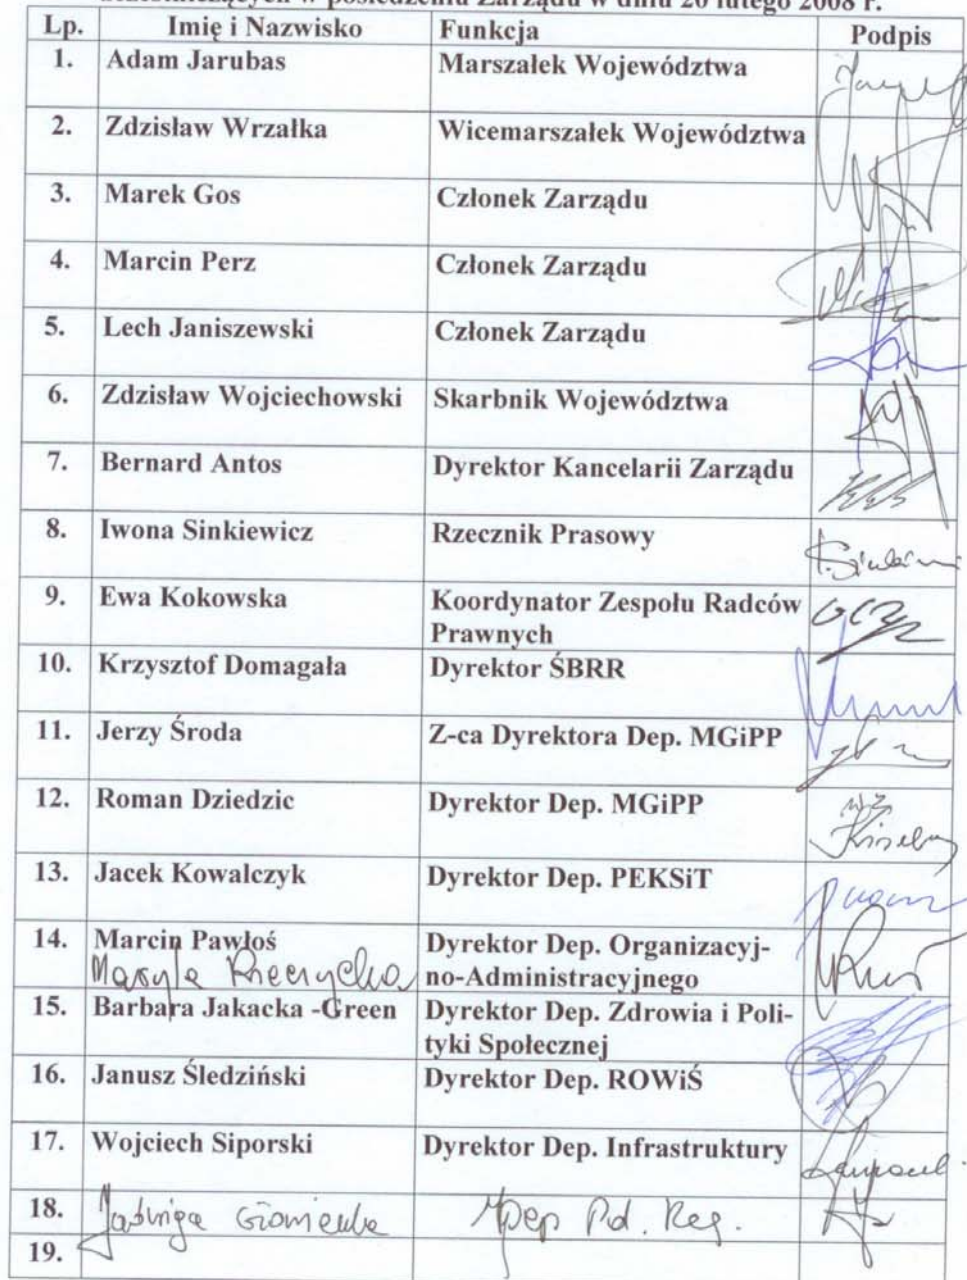 uczestniczących w posiedzeniu Zarządu w dniu 20 lutego 2008 r.
Lp. Imię i Nazwisko Funkcja Podpis
1. Adam Jarubas Marszałek Województwa
2. Zdzisław Wrzałka Wicemarszałek Województwa
3. Marek Gos Członek Zarządu
4. Marcin Perz Członek Zarządu
5. Lech Janiszewski Członek Zarządu
6. Zdzisław Wojciechowski Skarbnik Województwa
7. Bernard Antos Dyrektor Kancelarii Zarządu
8. Iwona Sinkiewicz Rzecznik Prasowy
9. Ewa Kokowska Koordynator Zespołu Radców
Prawnych
10. Krzysztof Domagała Dyrektor ŚBRR
11. Jerzy Środa Z-ca Dyrektora Dep. MGiPP
12. Roman Dziedzic Dyrektor Dep. MGiPP
13. Jacek Kowalczyk Dyrektor Dep. PEKSiT
14. Marcin Pawłoś Dyrektor Dep. Organizacyj-
no-Administracyjnego
15. Barbara Jakacka -Green Dyrektor Dep. Zdrowia i Poli-
tyki Społecznej
16. Janusz Śledziński Dyrektor Dep. ROWiŚ
17. Wojciech Siporski Dyrektor Dep. Infrastruktury
18. Jadwiga Pol. Reg.
19.